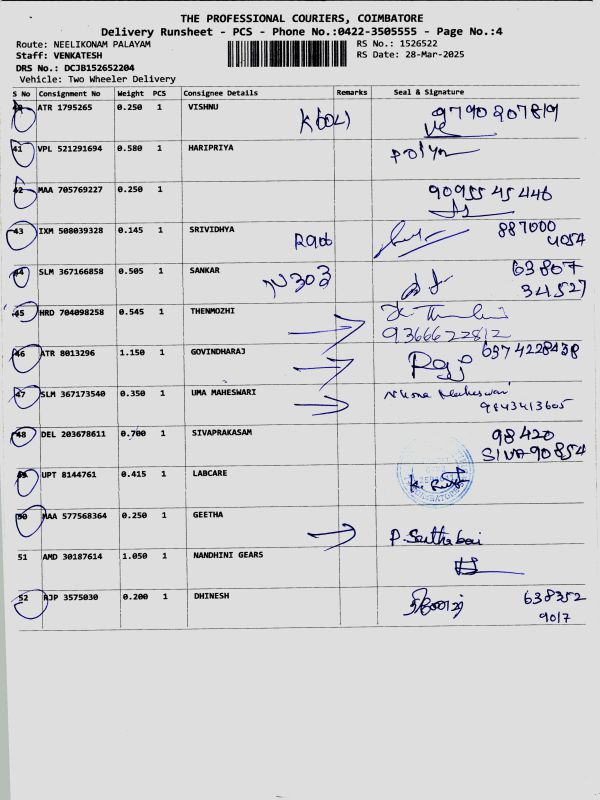 THE PROFESSIONAL COURIERS, COIMBATORE
Delivery Runsheet - PCS - Phone No.:0422-3505555 - Page No.:4
Route: NEELIKONAM PALAYAM RS No.: 1526522
Staff: VENKATESH RS Date: 28-Mar-2025
DRS No.: DCJB152652204
Vehicle: Two Wheeler Delivery
S No Consignment No Weight PCS Consignee Details Remarks Seal & Signature
ATR 1795265 0.250 1 VISHNU 9790207819
41 VPL 521291694 0.580 1 HARIPRIYA
42 MAA 705769227 0.250 1 90955 45446
43 IXM 508039328 0.145 1 SRIVIDHYA 887000
4054
44 SLM 367166858 0.505 1 SANKAR N303 63807
34527
45 HRD 704098258 0.545 1 THENMOZHI
9366622812
46 ATR 8013296 1.150 1 GOVINDHARAJ 6374228438
47 SLM 367173540 0.350 1 UMA MAHESWARI Uma Maheswari
9843413605
48 DEL 203678611 0.700 1 SIVAPRAKASAM 98420
SIVA 90854
49 UPT 8144761 0.415 1 LABCARE
50 MAA 577568364 0.250 1 GEETHA
51 AMD 30187614 1.050 1 NANDHINI GEARS
52 RJP 3575030 0.200 1 DHINESH 638352
9017